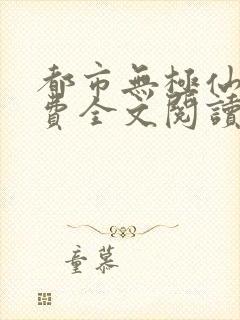 都市無極仙
費全文閱讀
童慕